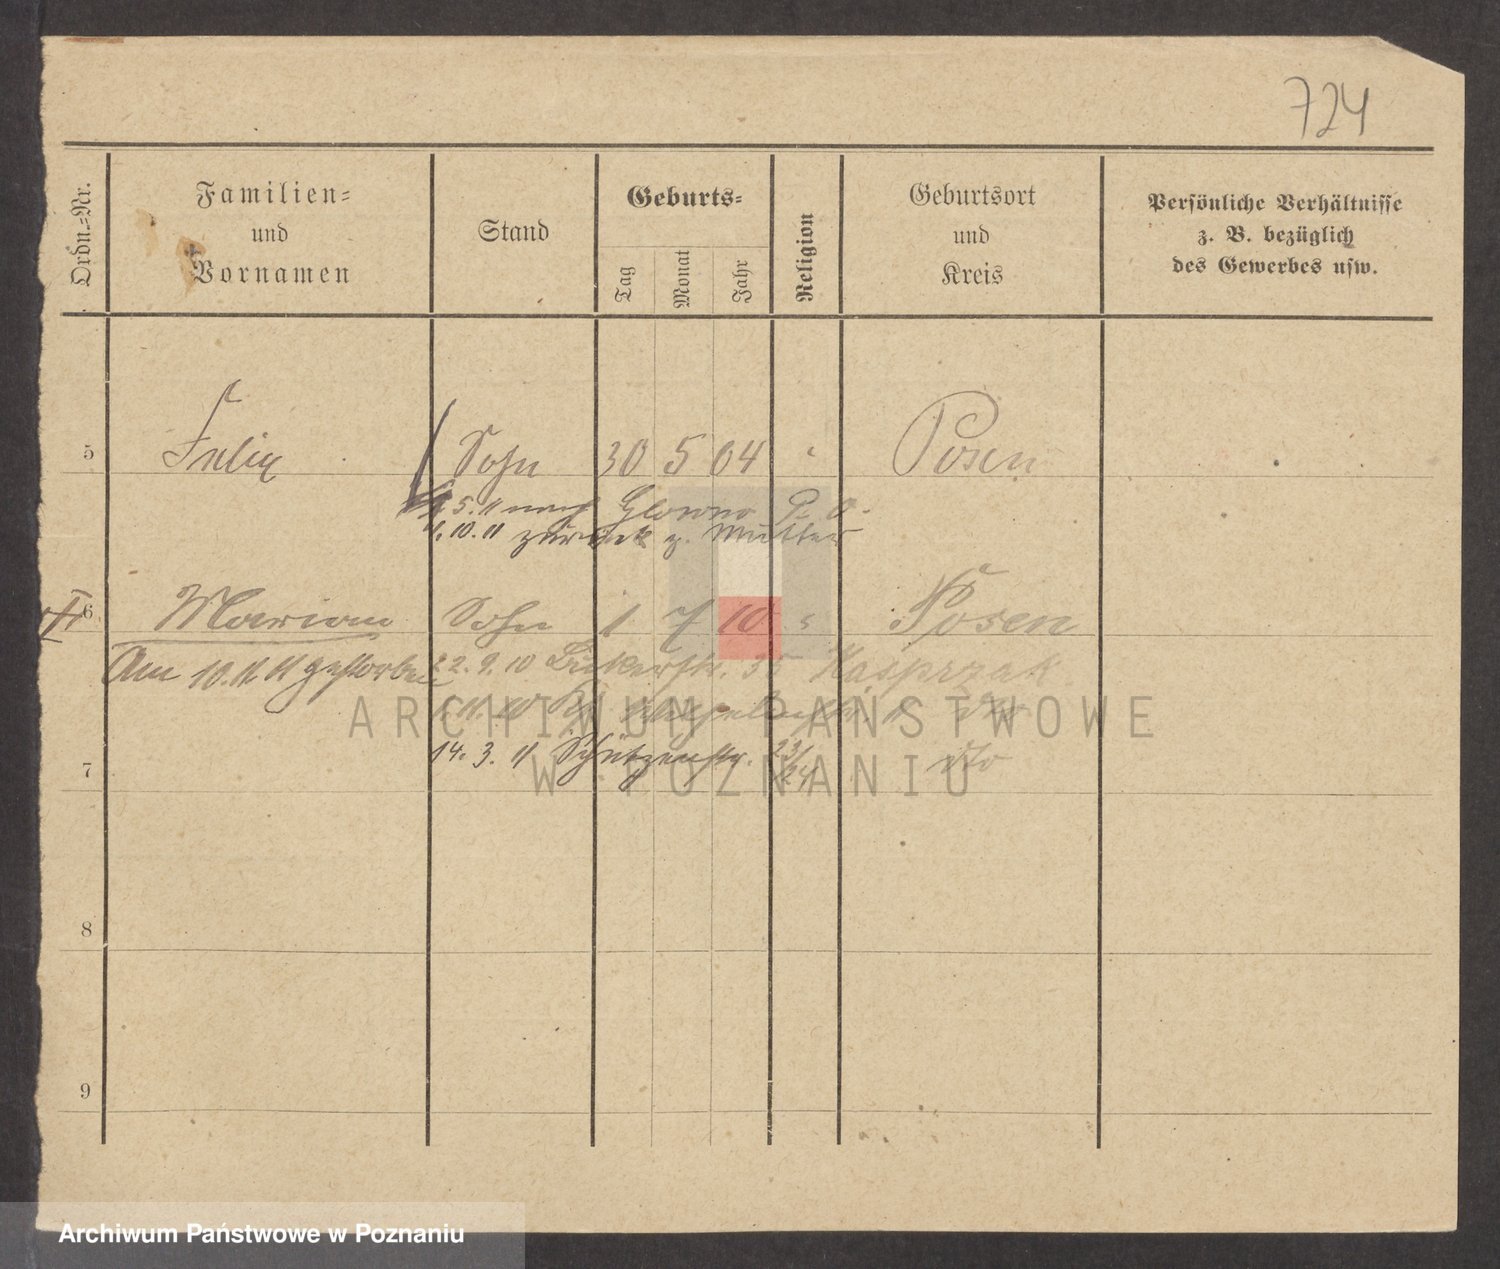 724
Ordn.-Nr.
Familien-
und
Vornamen
Stand
Geburts-
Tag
Monat
Jahr
Religion
Geburtsort
und
Kreis
Persönliche Verhältnisse
z. B. bezüglich
des Gewerbes usw.
5 Felix Sohn 30 5 04 " Posen
5. 11 nach Glowno P. O.
1. 10. 11 zurück z. Mutter
6 Marian Sohn 1 7 10 " Posen
Am 10. 11. 11 gestorben
2. 9. 10 Bäckerstr. Kasprzak
1. 11. 10
14. 3. 11 Schützenstr. 23/24 dto
7
8
9
ARCHIWUM PAŃSTWOWE
W POZNANIU
Archiwum Państwowe w Poznaniu